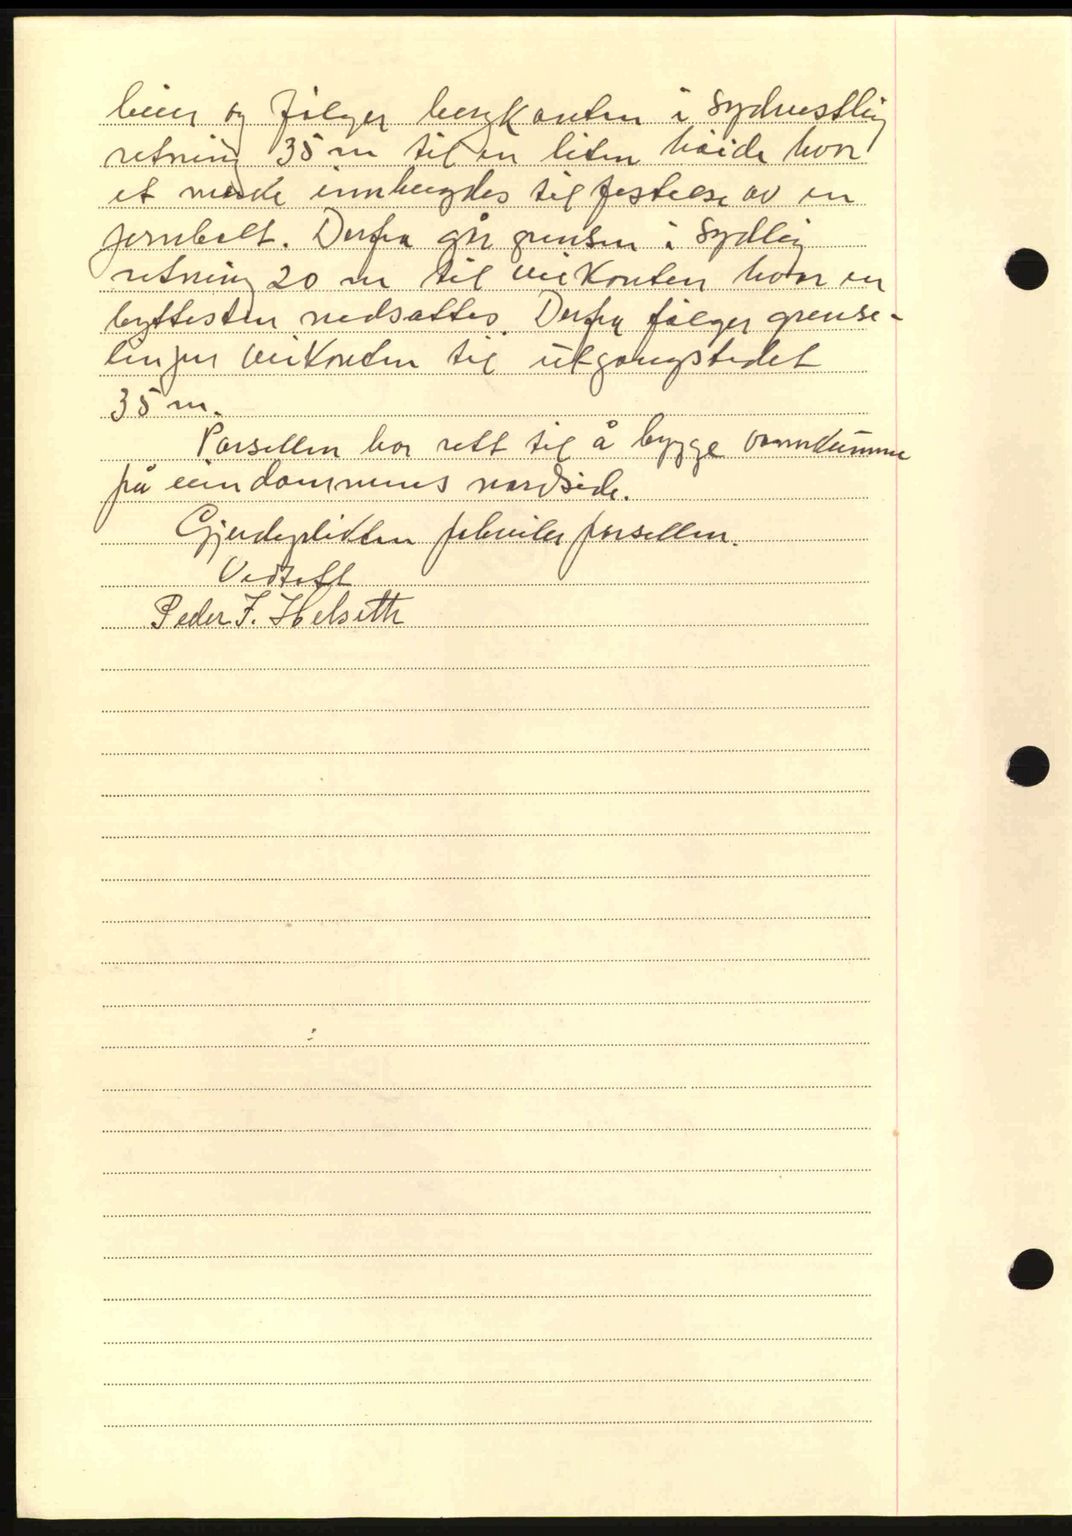 bøier og følger bergkanten i sydvestlig
retning 35 m til en liten høide hvor
et merke innhugdes til festelse av en
jernbolt. Derfra går grensen i sydlig
retning 20 m til veikanten hvor en
byttesten nedsattes. Derfra følger grense-
linjen veikanten til utgangstedet
35 m.
Parsellen har rett til å bygge vannkumme
på eiendommens nordside.
Gjerdeplikten påhviler parsellen.
Vedtatt
Peder F. Helseth